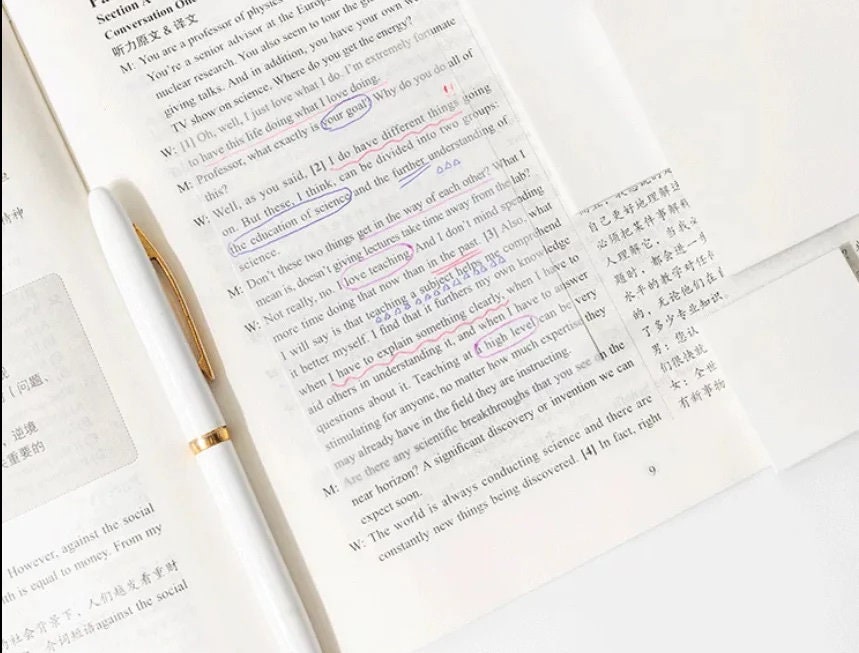 Section A
Conversation One
听力原文 & 译文
M: You are a professor of physics
You're a senior advisor at the Europ
nuclear research. You also seem to tour the
giving talks. And in addition, you have your own
TV show on science. Where do you get the energy?
W: [1] Oh, well, I just love what I do. I'm extremely fortunate
to have this life doing what I love doing.
M: Professor, what exactly is your goal? Why do you do all of
this?
W: Well, as you said, [2] I do have different things going
on. But these, I think, can be divided into two groups:
the education of science and the further understanding of
science.
M: Don't these two things get in the way of each other? What I
mean is, doesn't giving lectures take time away from the lab?
W: Not really, no. I love teaching. And I don't mind spending
more time doing that now than in the past. [3] Also, what
I will say is that teaching a subject helps me comprehend
it better myself. I find that it furthers my own knowledge
when I have to explain something clearly, when I have to
aid others in understanding it, and when I have to answer
questions about it. Teaching at a high level can be very
stimulating for anyone, no matter how much expertise they
may already have in the field they are instructing.
M: Are there any scientific breakthroughs that you see on the
near horizon? A significant discovery or invention we can
expect soon.
W: The world is always conducting science and there are
constantly new things being discovered. [4] In fact, right
9
自己更好地理解
必须把某件事解释
人理解它，当我
题时，都会进一步
水平的教学对任何
的，无论他们在
了多少专业知识。
男：您认
们很快就
女：全世
有新事物
精神
问题、
，逆境
重要的
However, against the social
th is equal to money. From my
社会背景下，人们越发看重财
介词短语against the social